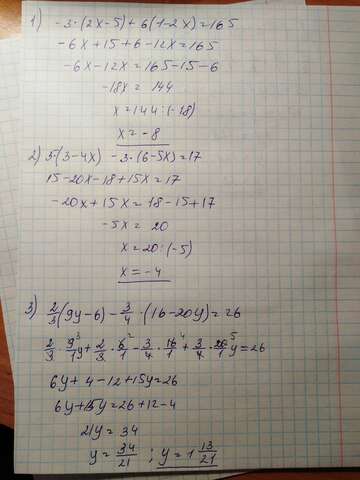 1) -3·(2x-5)+6(1-2x)=165
-6x+15+6-12x=165
-6x-12x=165-15-6
-18x=144
x=144:(-18)
x=-8
2) 5·(3-4x)-3·(6-5x)=17
15-20x-18+15x=17
-20x+15x=18-15+17
-5x=20
x=20:(-5)
x=-4
3) 2/3(9y-6)-3/4·(16-20y)=26
2/3·9³/1y+2/3·6²/1-3/4·16⁴/1+3/4·20⁵/1y=26
6y+4-12+15y=26
6y+15y=26+12-4
21y=34
y=34/21; y=1 13/21